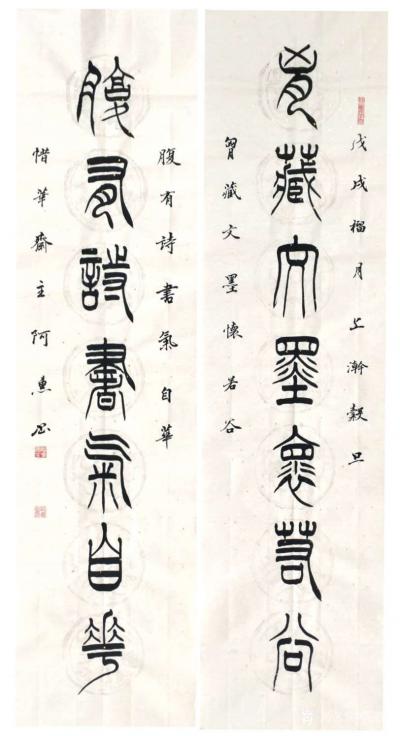 戊戌榴月上澣穀旦
胷藏文墨懷若谷
胷藏文墨懷若谷
腹有詩書氣自華
腹有詩書氣自華
惜華齋主阿惠